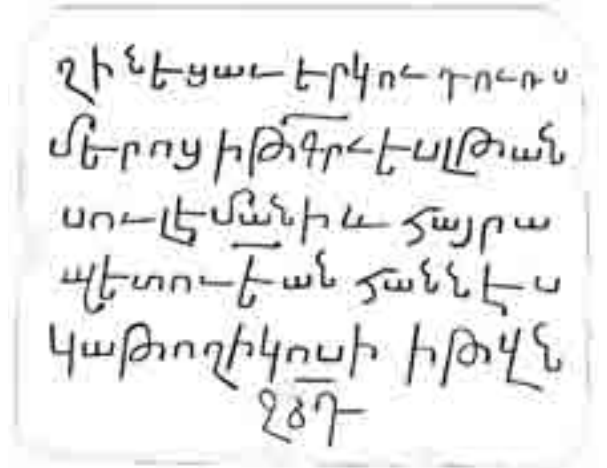 շինեցաւ երկու դուռս
մերոց ի թգրւե սլթան
սուլէմանի և հայրա
պետուեան հաննէս
կաթողիկոսի ի թվն
ՋՁԴ